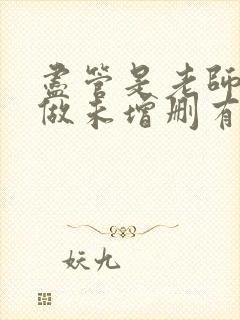 盡管是老師
做未增删有
妖九